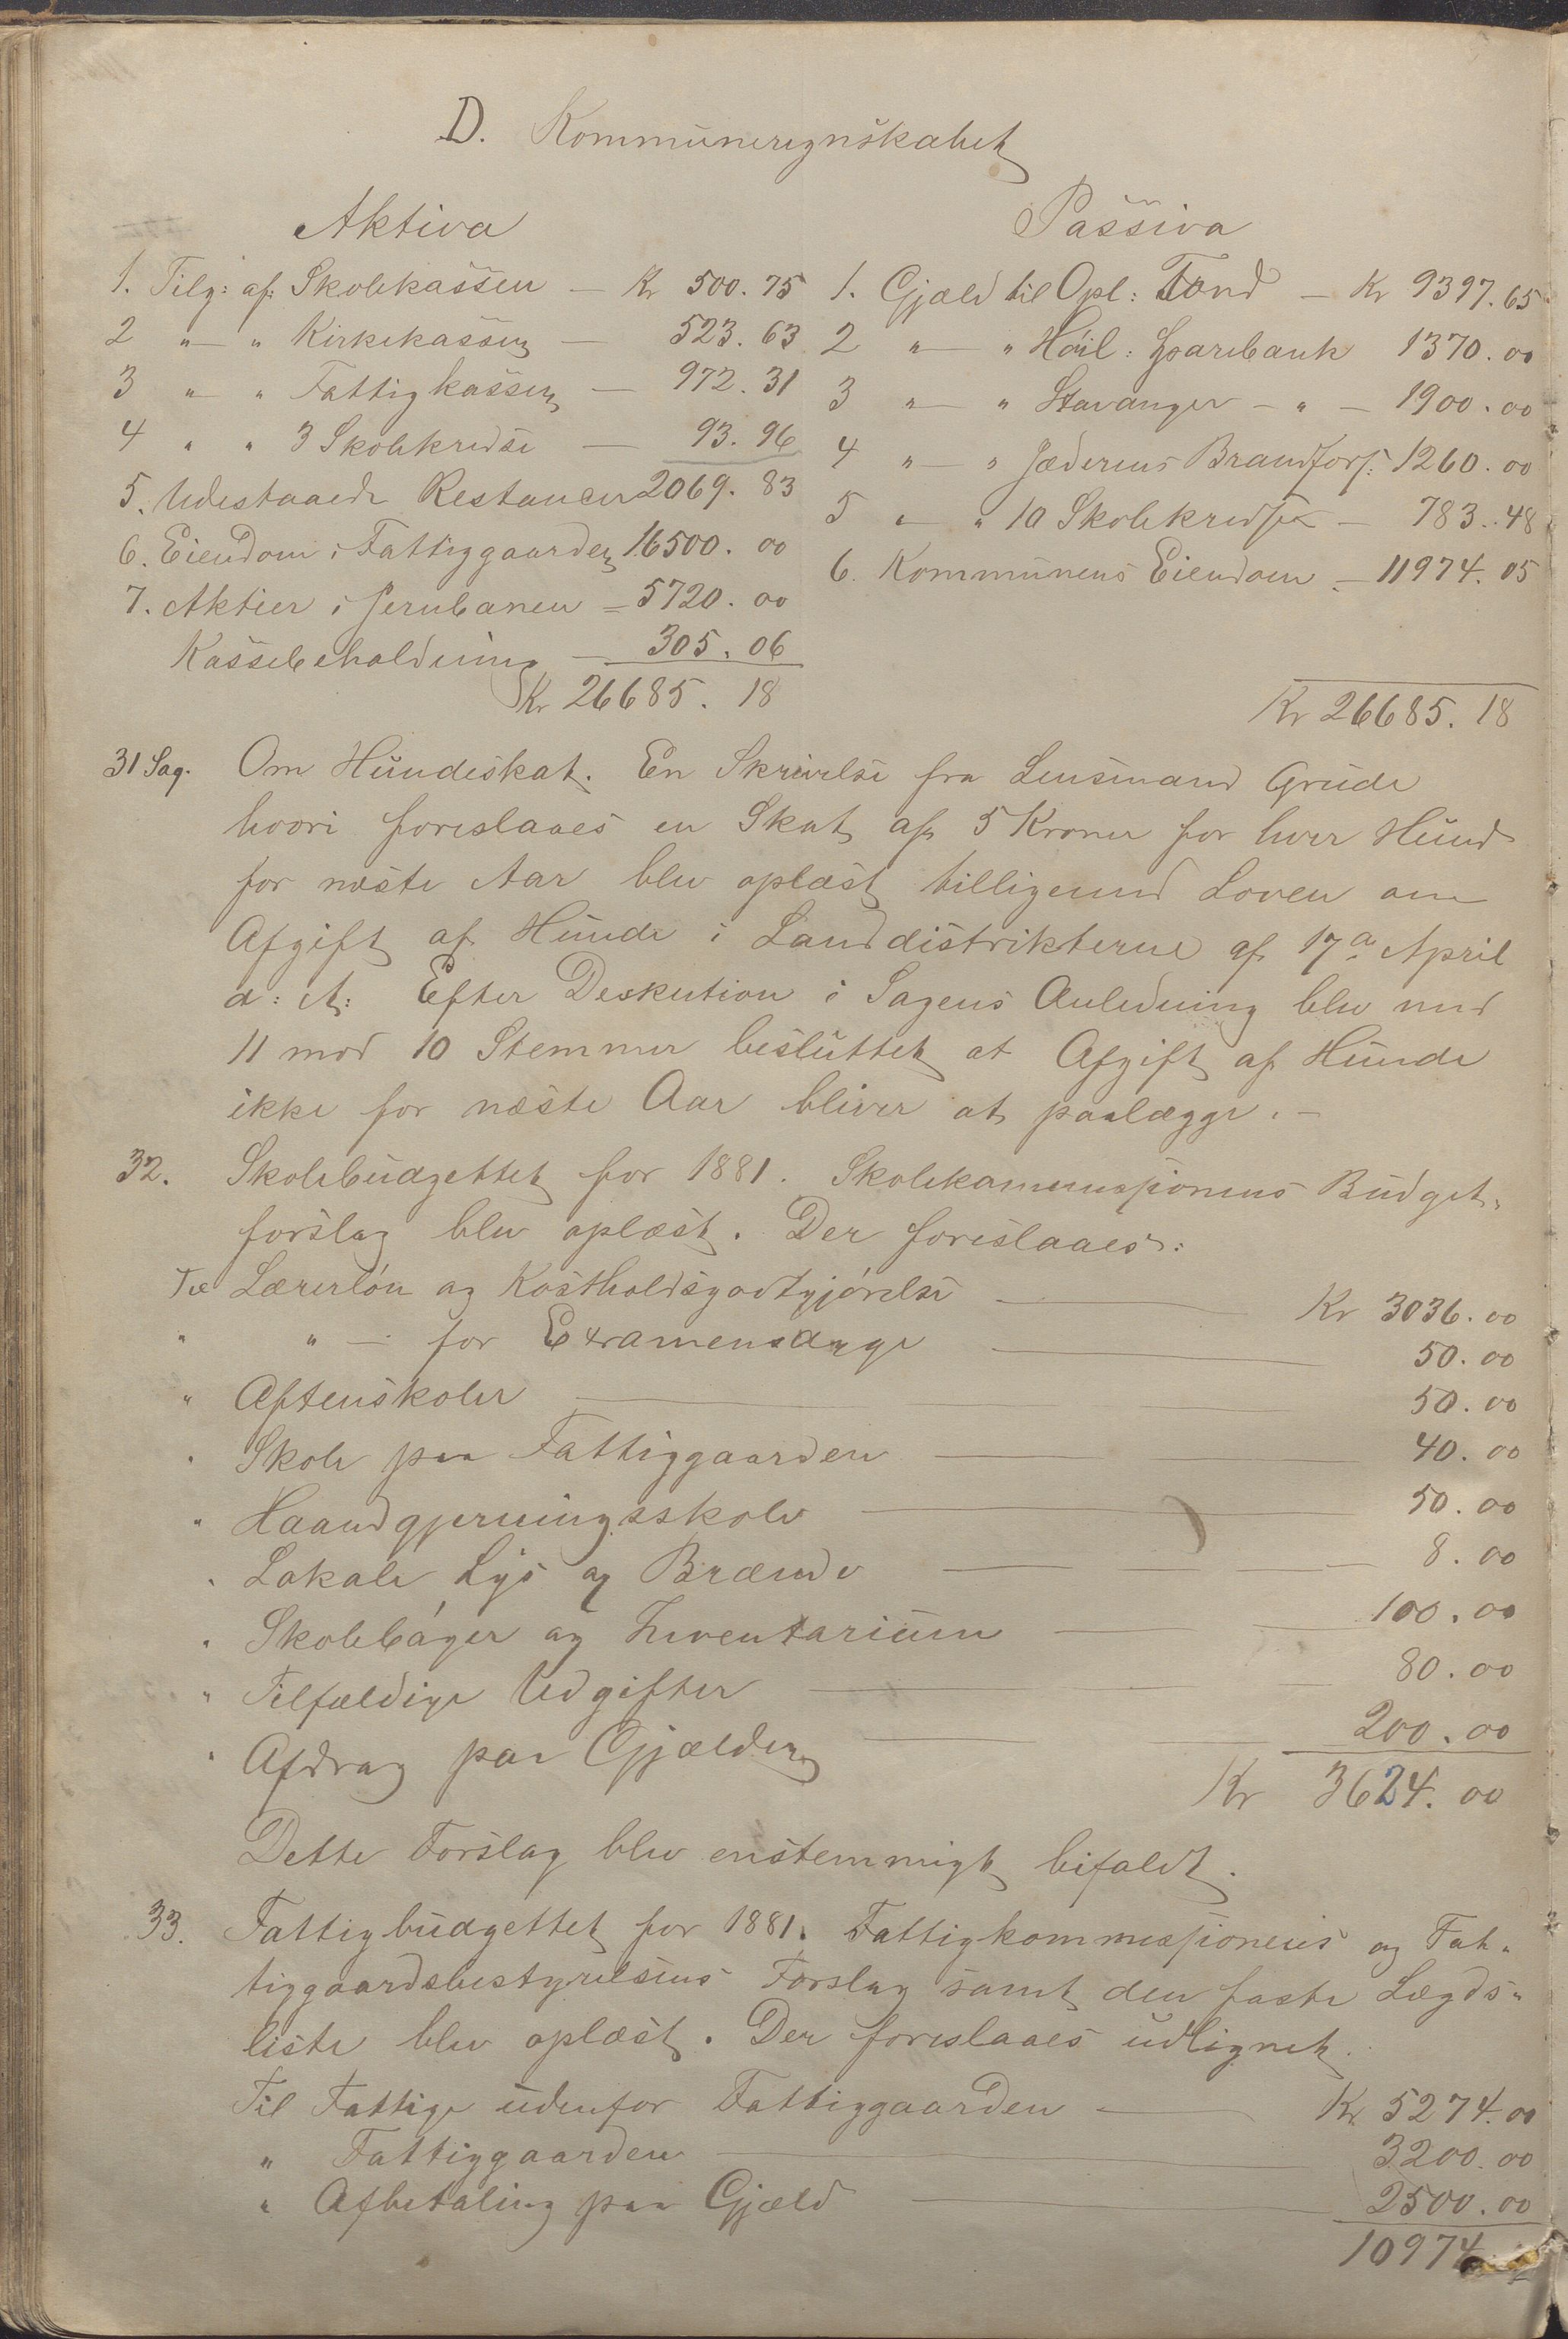 D. Kommuneregnskabet
Aktiva
1. Tilg: af: Skolekassen — Kr 500.75
2 " — " Kirkekassen — 523.63
3 " — " Fattigkassen — 972.31
4 " " 3 Skolekredse — 93.96
5. Udestaaede Restancer 2069.83
6. Eiendom i Fattiggaarden 16500.00
7. Aktier i Jernbanen — 5720.00
Kassebeholdning — 305.06
Kr 26685.18
Passiva
1. Gjæld til Opl: Fond — Kr 9397.65
2 " — " Høil: Sparebank 1370.00
3 " — " Stavanger — " — 1900.00
4 " — " Jæderens Brandfors: 1260.00
5 " — " 10 Skolekredse — 783.48
6. Kommunens Eiendom — 11974.05
Kr 26685.18
31 Sag. Om Hundeskat. En Skrivelse fra Lensmand Grude
hvori foreslaaes en Skat af 5 Kroner for hver Hund
for næste Aar blev oplæst tilligemed Loven om
Afgift af Hunde i Landdistrikterne af 17de April
d: A: Efter Deskution i Sagens Anledning blev med
11 mod 10 Stemmer besluttet at Afgift af Hunde
ikke for næste Aar bliver at paalægge. —
32. Skolebudgettet for 1881. Skolekommissionens Budget-
forslag blev oplæst. Der foreslaaes:
Til Lærerløn og Kostholdsgodtgjørelse — Kr 3036.00
" " — for Examensdage — 50.00
" Aftenskoler — 50.00
" Skole paa Fattiggaarden — 40.00
" Haandgjerningsskole — 50.00
" Lokale Lys og Brænde — 8.00
" Skolebøger og Inventarium — 100.00
" Tilfældige Udgifter — 80.00
" Afdrag paa Gjælden — 200.00
Kr 3624.00
Dette Forslag blev enstemmigt bifaldt.
33. Fattigbudgettet for 1881. Fattigkommissionens og Fat-
tiggaardsbestyrelsens Forslag samt den faste Lægds-
liste blev oplæst. Der foreslaaes udlignet.
Til Fattige udenfor Fattiggaarden — Kr 5274.00
" Fattiggaarden — 3200.00
" Afbetaling paa Gjæld — 2500.00
10974